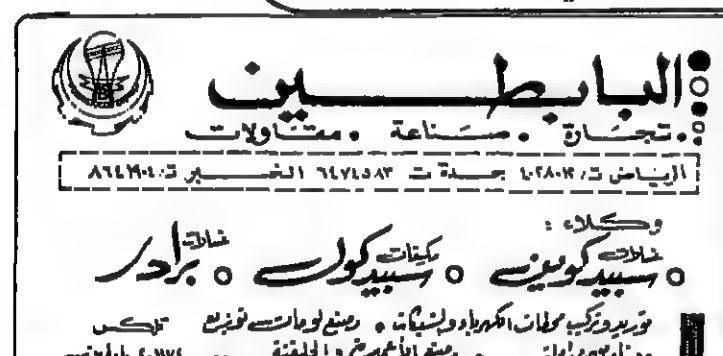 البابطين
• تجارة • صناعة • مقاولات
الرياض ت: ٤٠٢٨٠١٢ جدة ت ٦٤٧٤٥٨٣ الخبر ت: ٨٦٤١٩٠٤
وكلاء :
○ غسالات سبيد كوين ○ مكيفات سبيد كول ○ غسالات برادر
توريد وتركيب محطات الكهرباء والشبكات • مصنع لوحات توزيع تلكس
مصنع الأعمدة